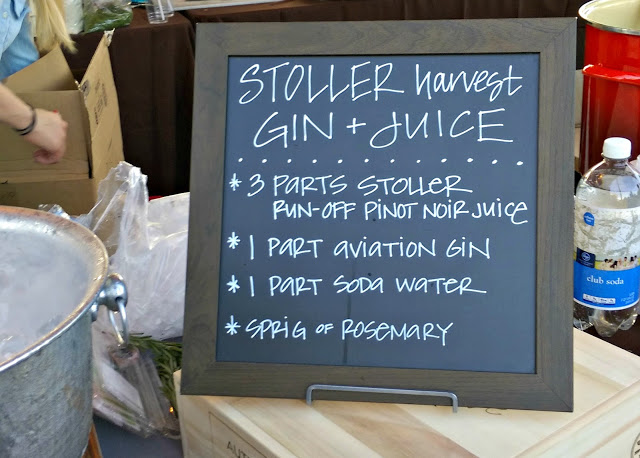 STOLLER harvest
GIN + JUICE
* 3 PARTS STOLLER
RUN-OFF PINOT NOIR JUICE
* 1 PART AVIATION GIN
* 1 PART SODA WATER
* SPRIG OF ROSEMARY
club soda